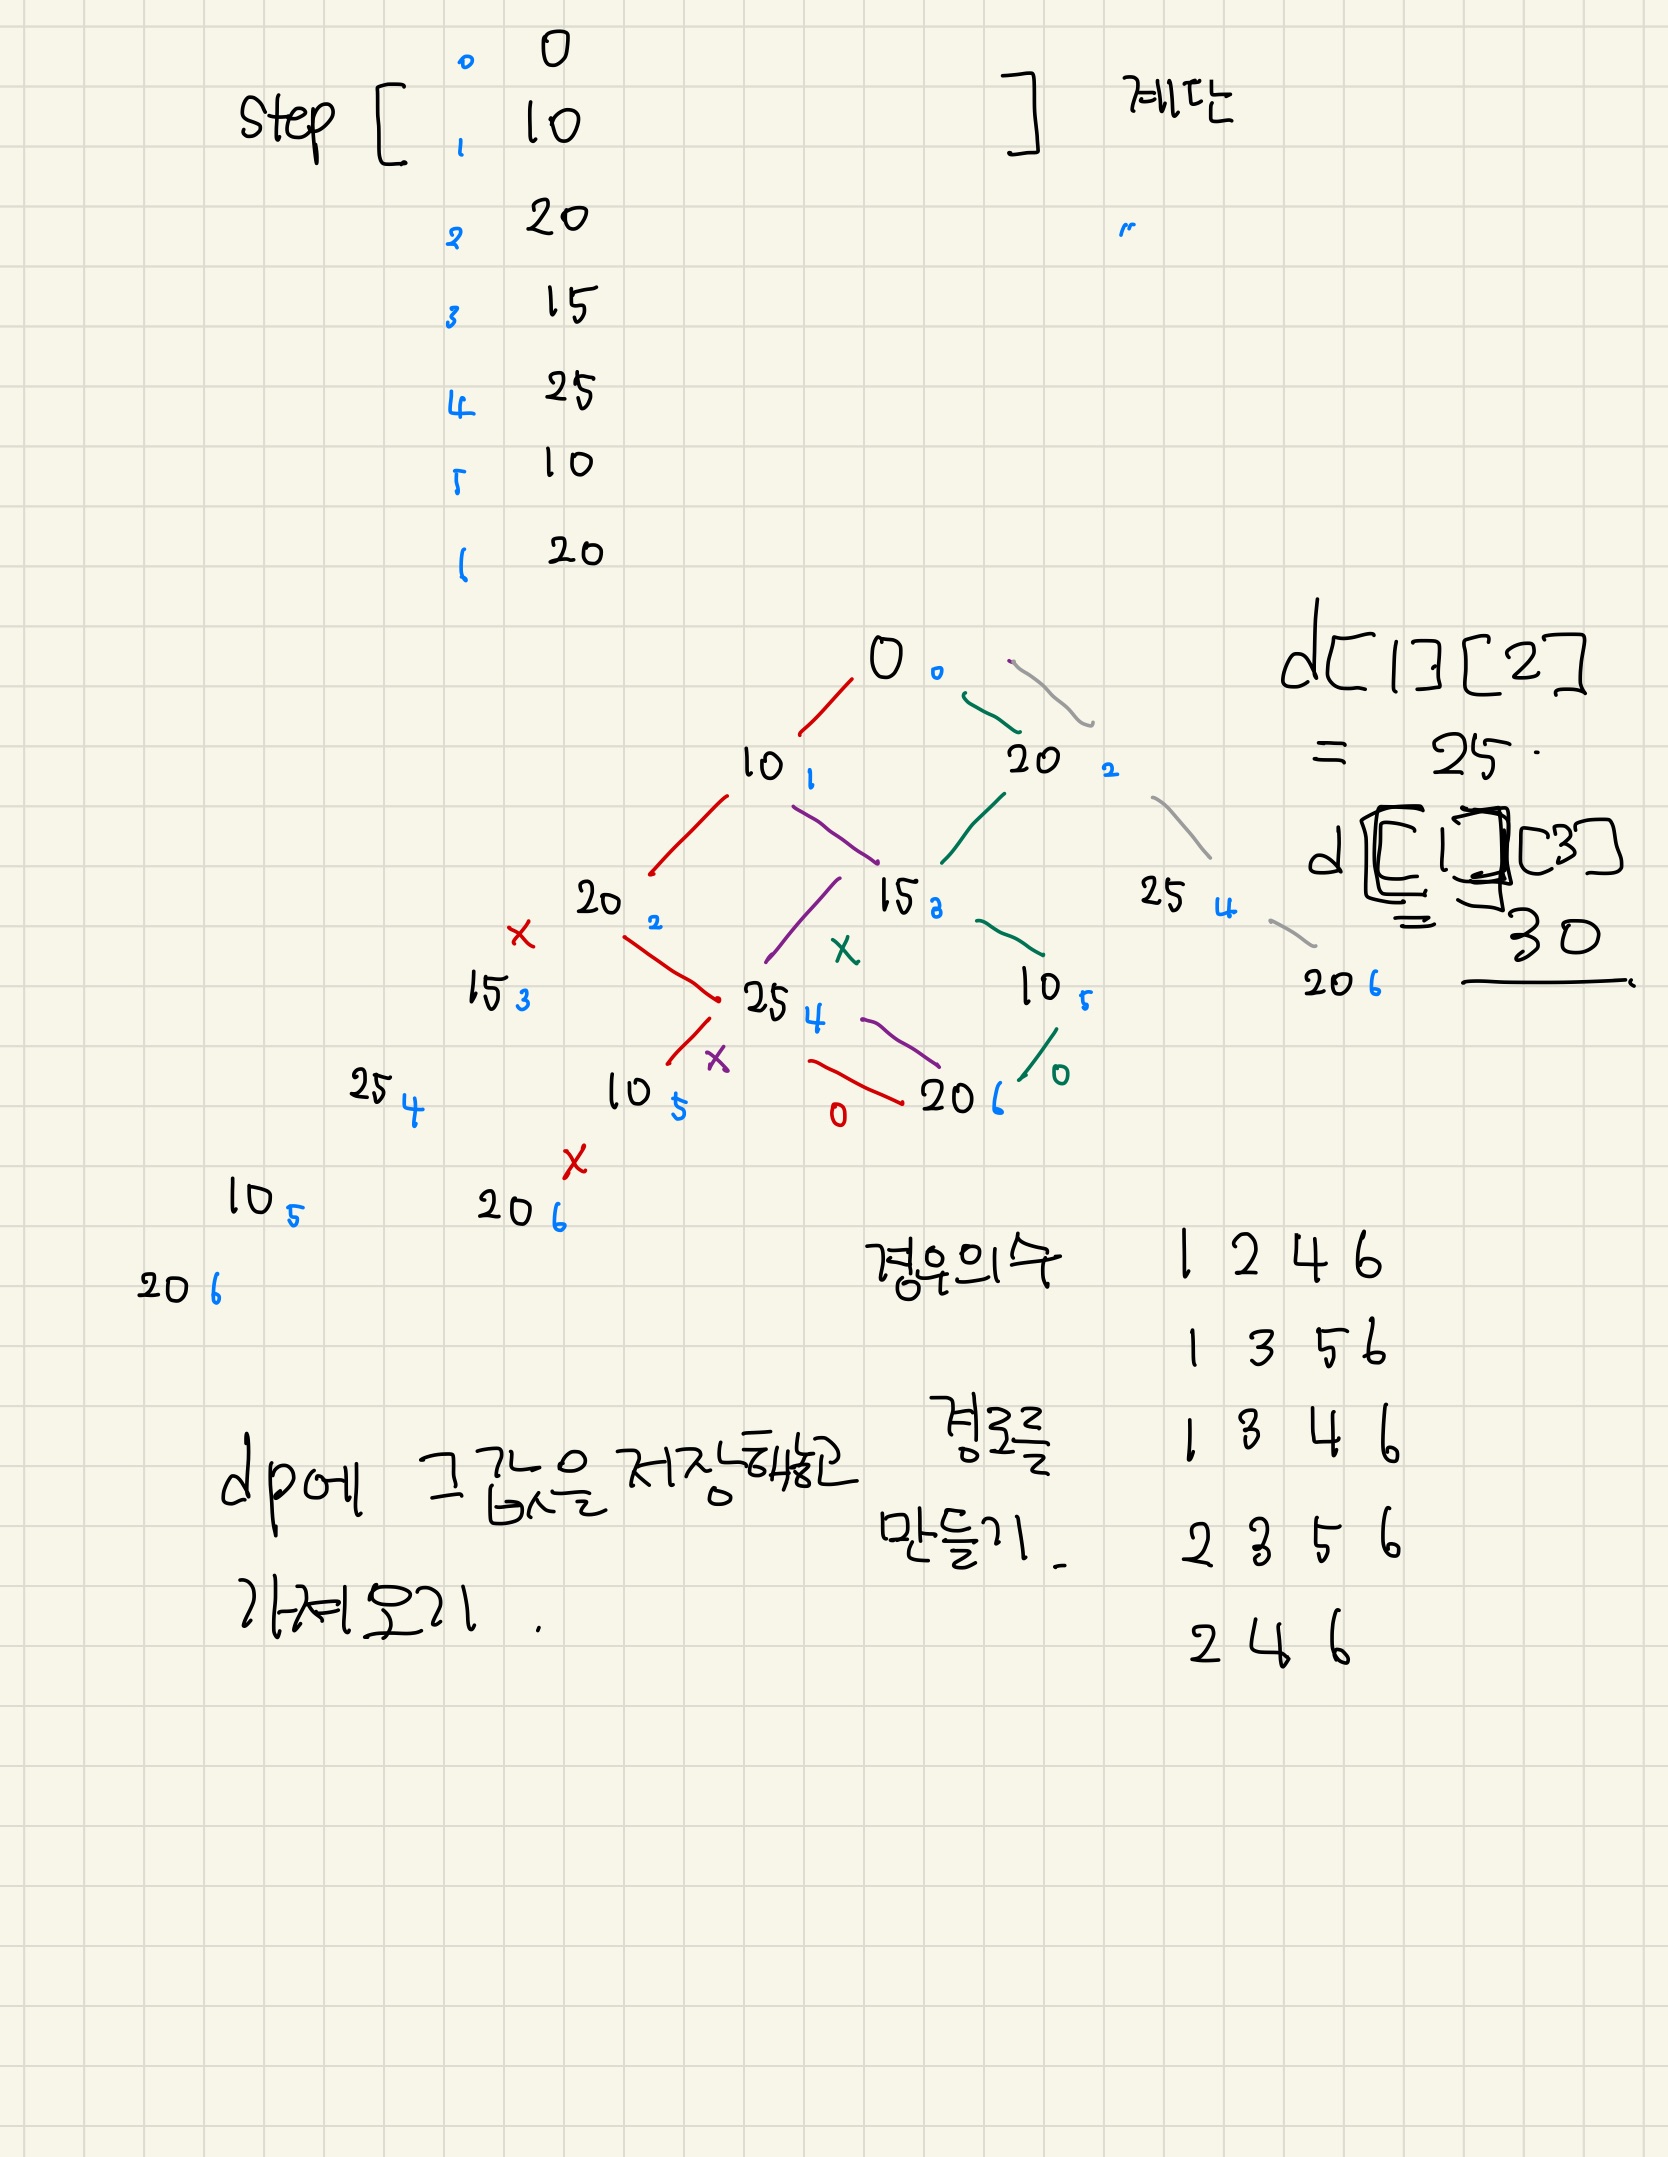 0 0
step [ 1 10 ] 계단
2 20
3 15
4 25
5 10
6 20
0 0
d[1][2]
10 1 20 2
= 25.
20 2 15 3 25 4
d[1][3]
= 30
x
15 3 25 4 x 10 5 20 6
25 4 10 5 x 20 6 0
0
x
10 5 20 6
20 6
경우의수 1 2 4 6
1 3 5 6
경로를 1 3 4 6
만들기. 2 3 5 6
2 4 6
dp에 그 값을 저장해놓고
가져오기.